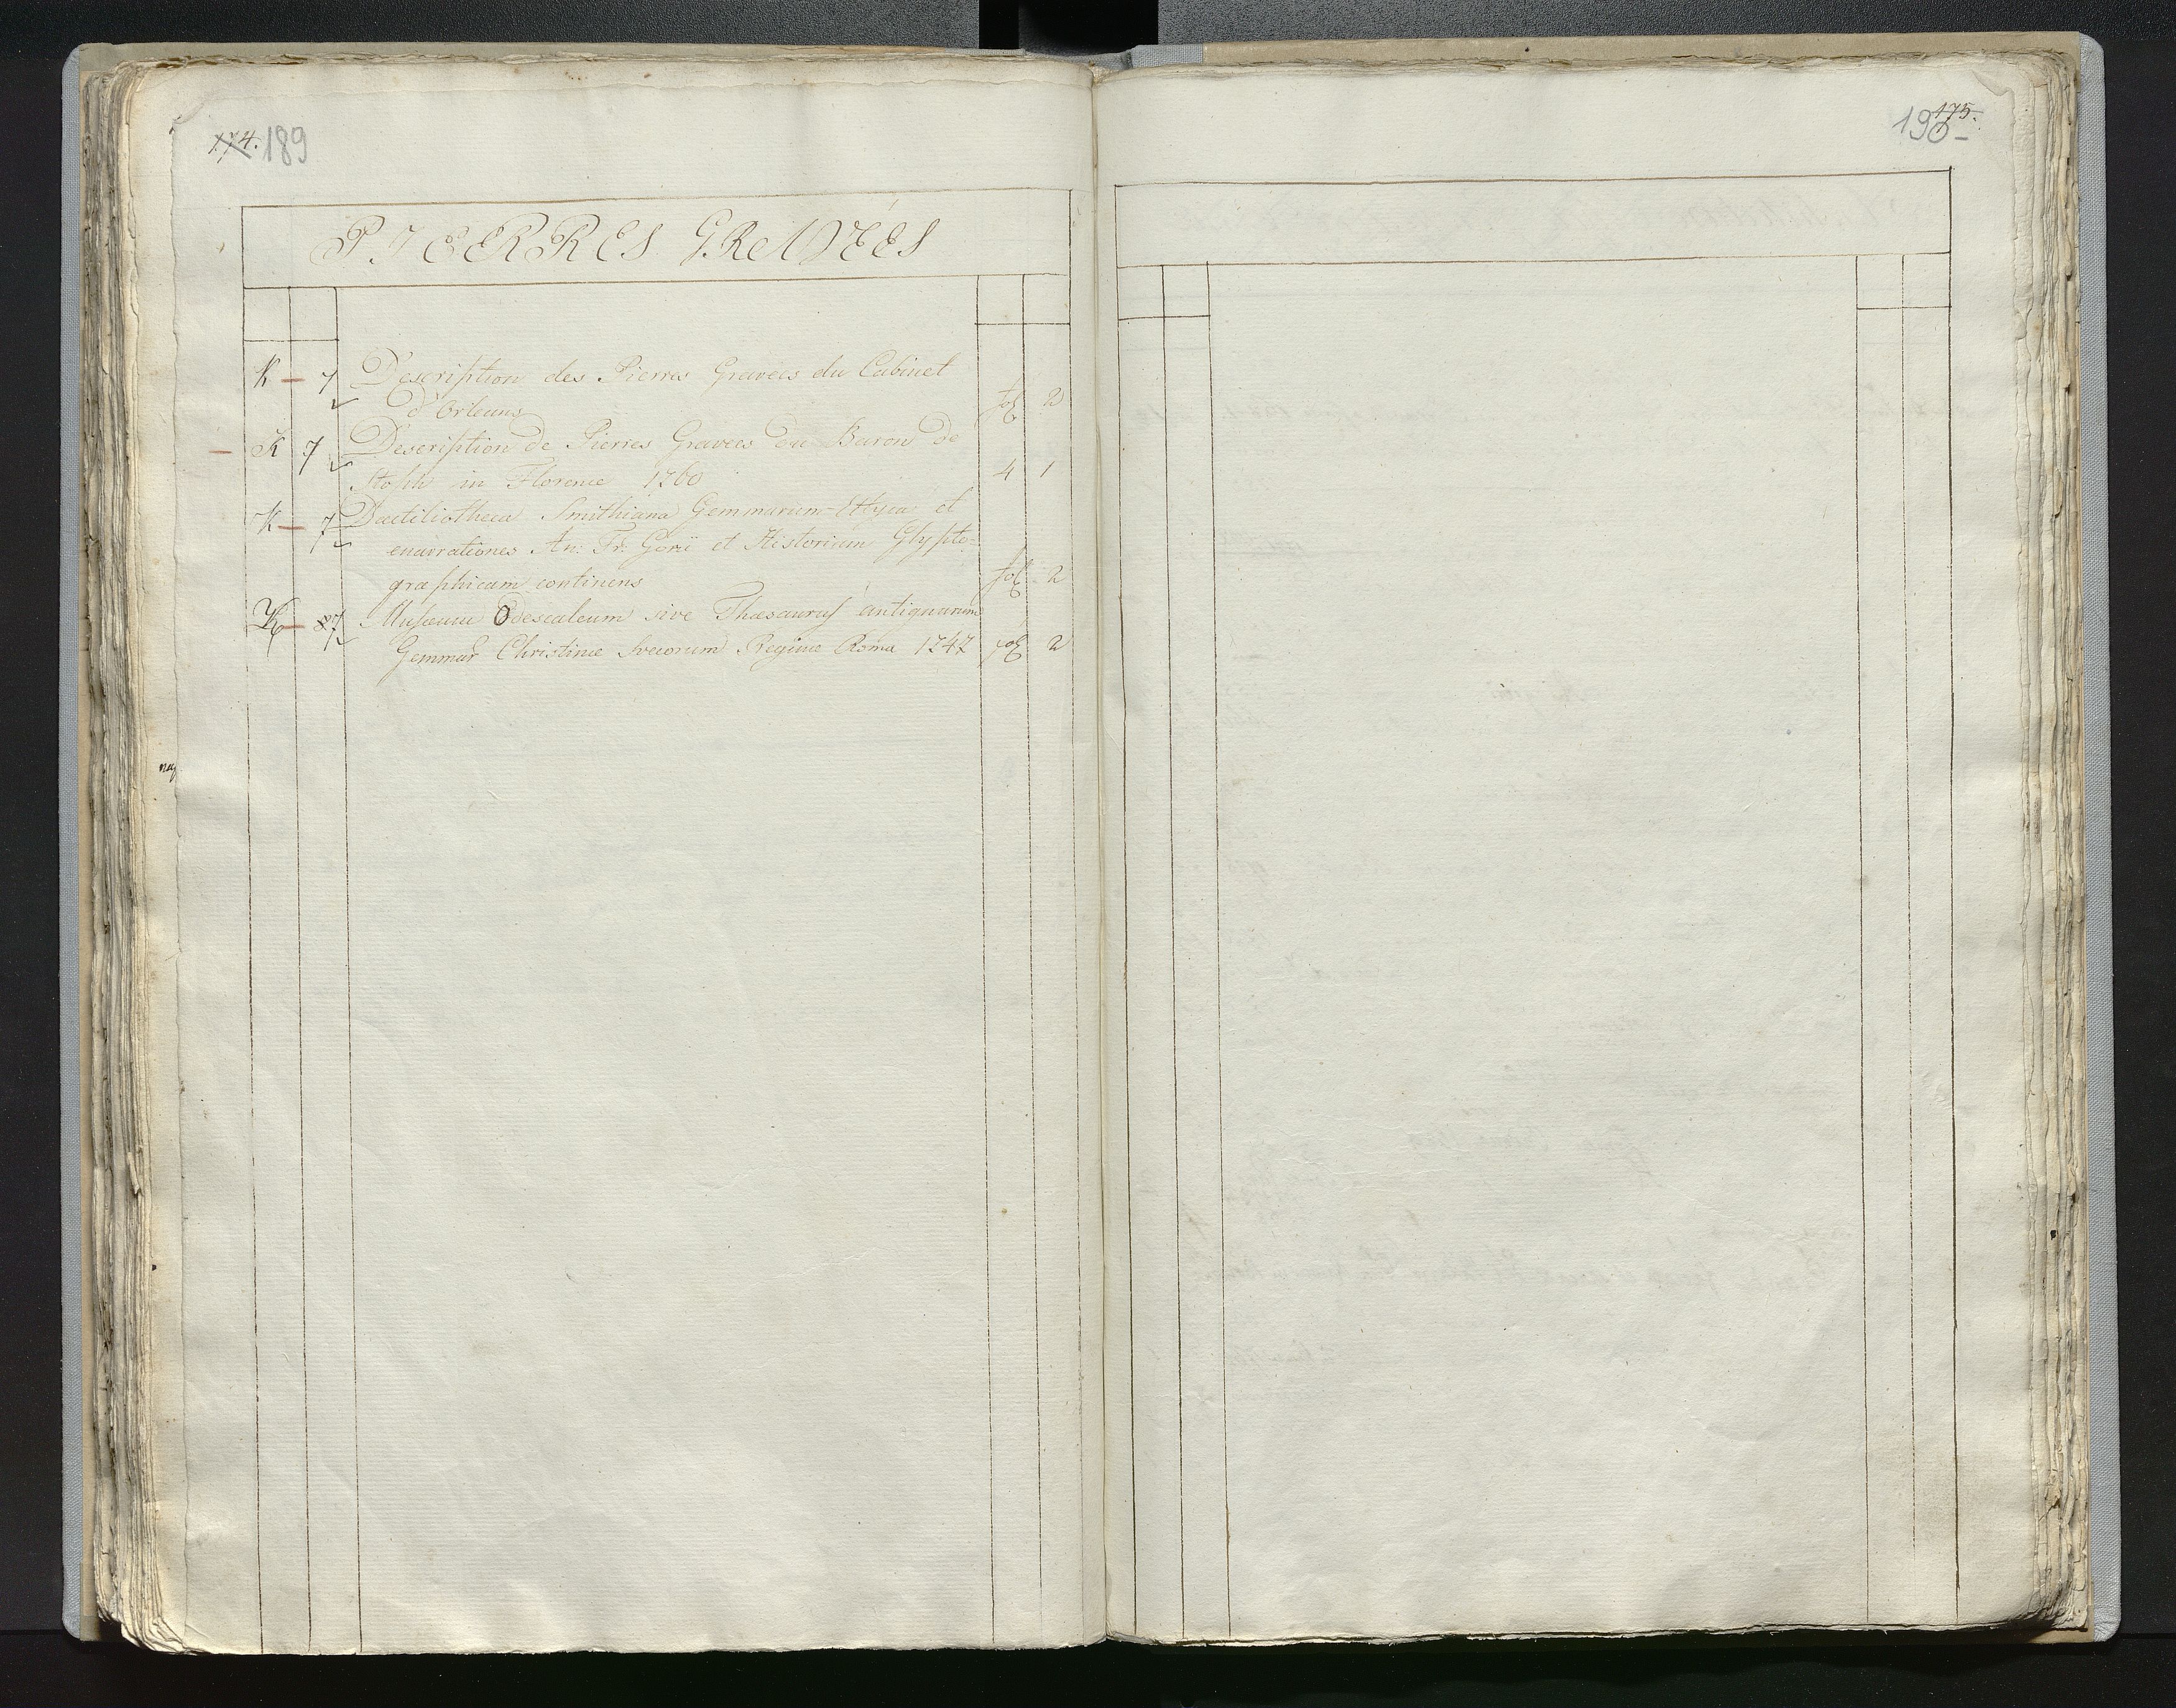 174. 189
PIERRES GRAVÉES
K 7 Description des Pierres Gravées du Cabinet
d'Orleans fol 2
K 7 Description de Pierres Gravees du Baron de
Stosch in Florence 1760 4 1
K 7 Dactiliotheca Smithiana Gemmarum et
enarrationes An: Fr: Gorii et Historiam Glypto=
graphicam continens fol 2
K 7 Musæum Odescalcum sive Thæsaurus antiquarum
Gemmar Christinæ Svecorum Reginæ Roma 1747 fol 2
190 175.